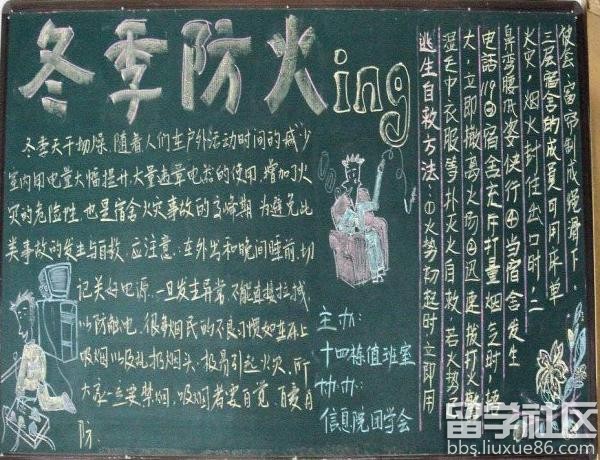 冬季防火ing
冬季天干物燥,随着人们在户外活动时间的减少
室内用电量大幅提升,大量违章电器的使用,增加了火
灾的危险性,也是宿舍火灾事故的高峰期,为避免此
类事故的发生与自救,应注意:在外出和晚间睡前,切
记关好电源,一旦发生异常,不能直接扑救,
以防触电,很多烟民的不良习惯如在床上
吸烟以及乱扔烟头,极易引起火灾,所
大家一定要禁烟,吸烟者要自觉,自爱自
防.
主办:
十四栋值班室
协办:
信息院团学会
逃生自救方法:①火势初起时立即用
湿毛巾衣服等扑灭火自救,若火势
大,立即撤离火场②迅速拨打火警
电话119③宿舍充斥大量烟气时,捂
鼻弯腰低姿快行④当宿舍发生
火灾,烟火封住出口时,二
三层宿舍的成员可用床单
窗帘制成绳滑下,
留学社区
bbs.liuxue86.com